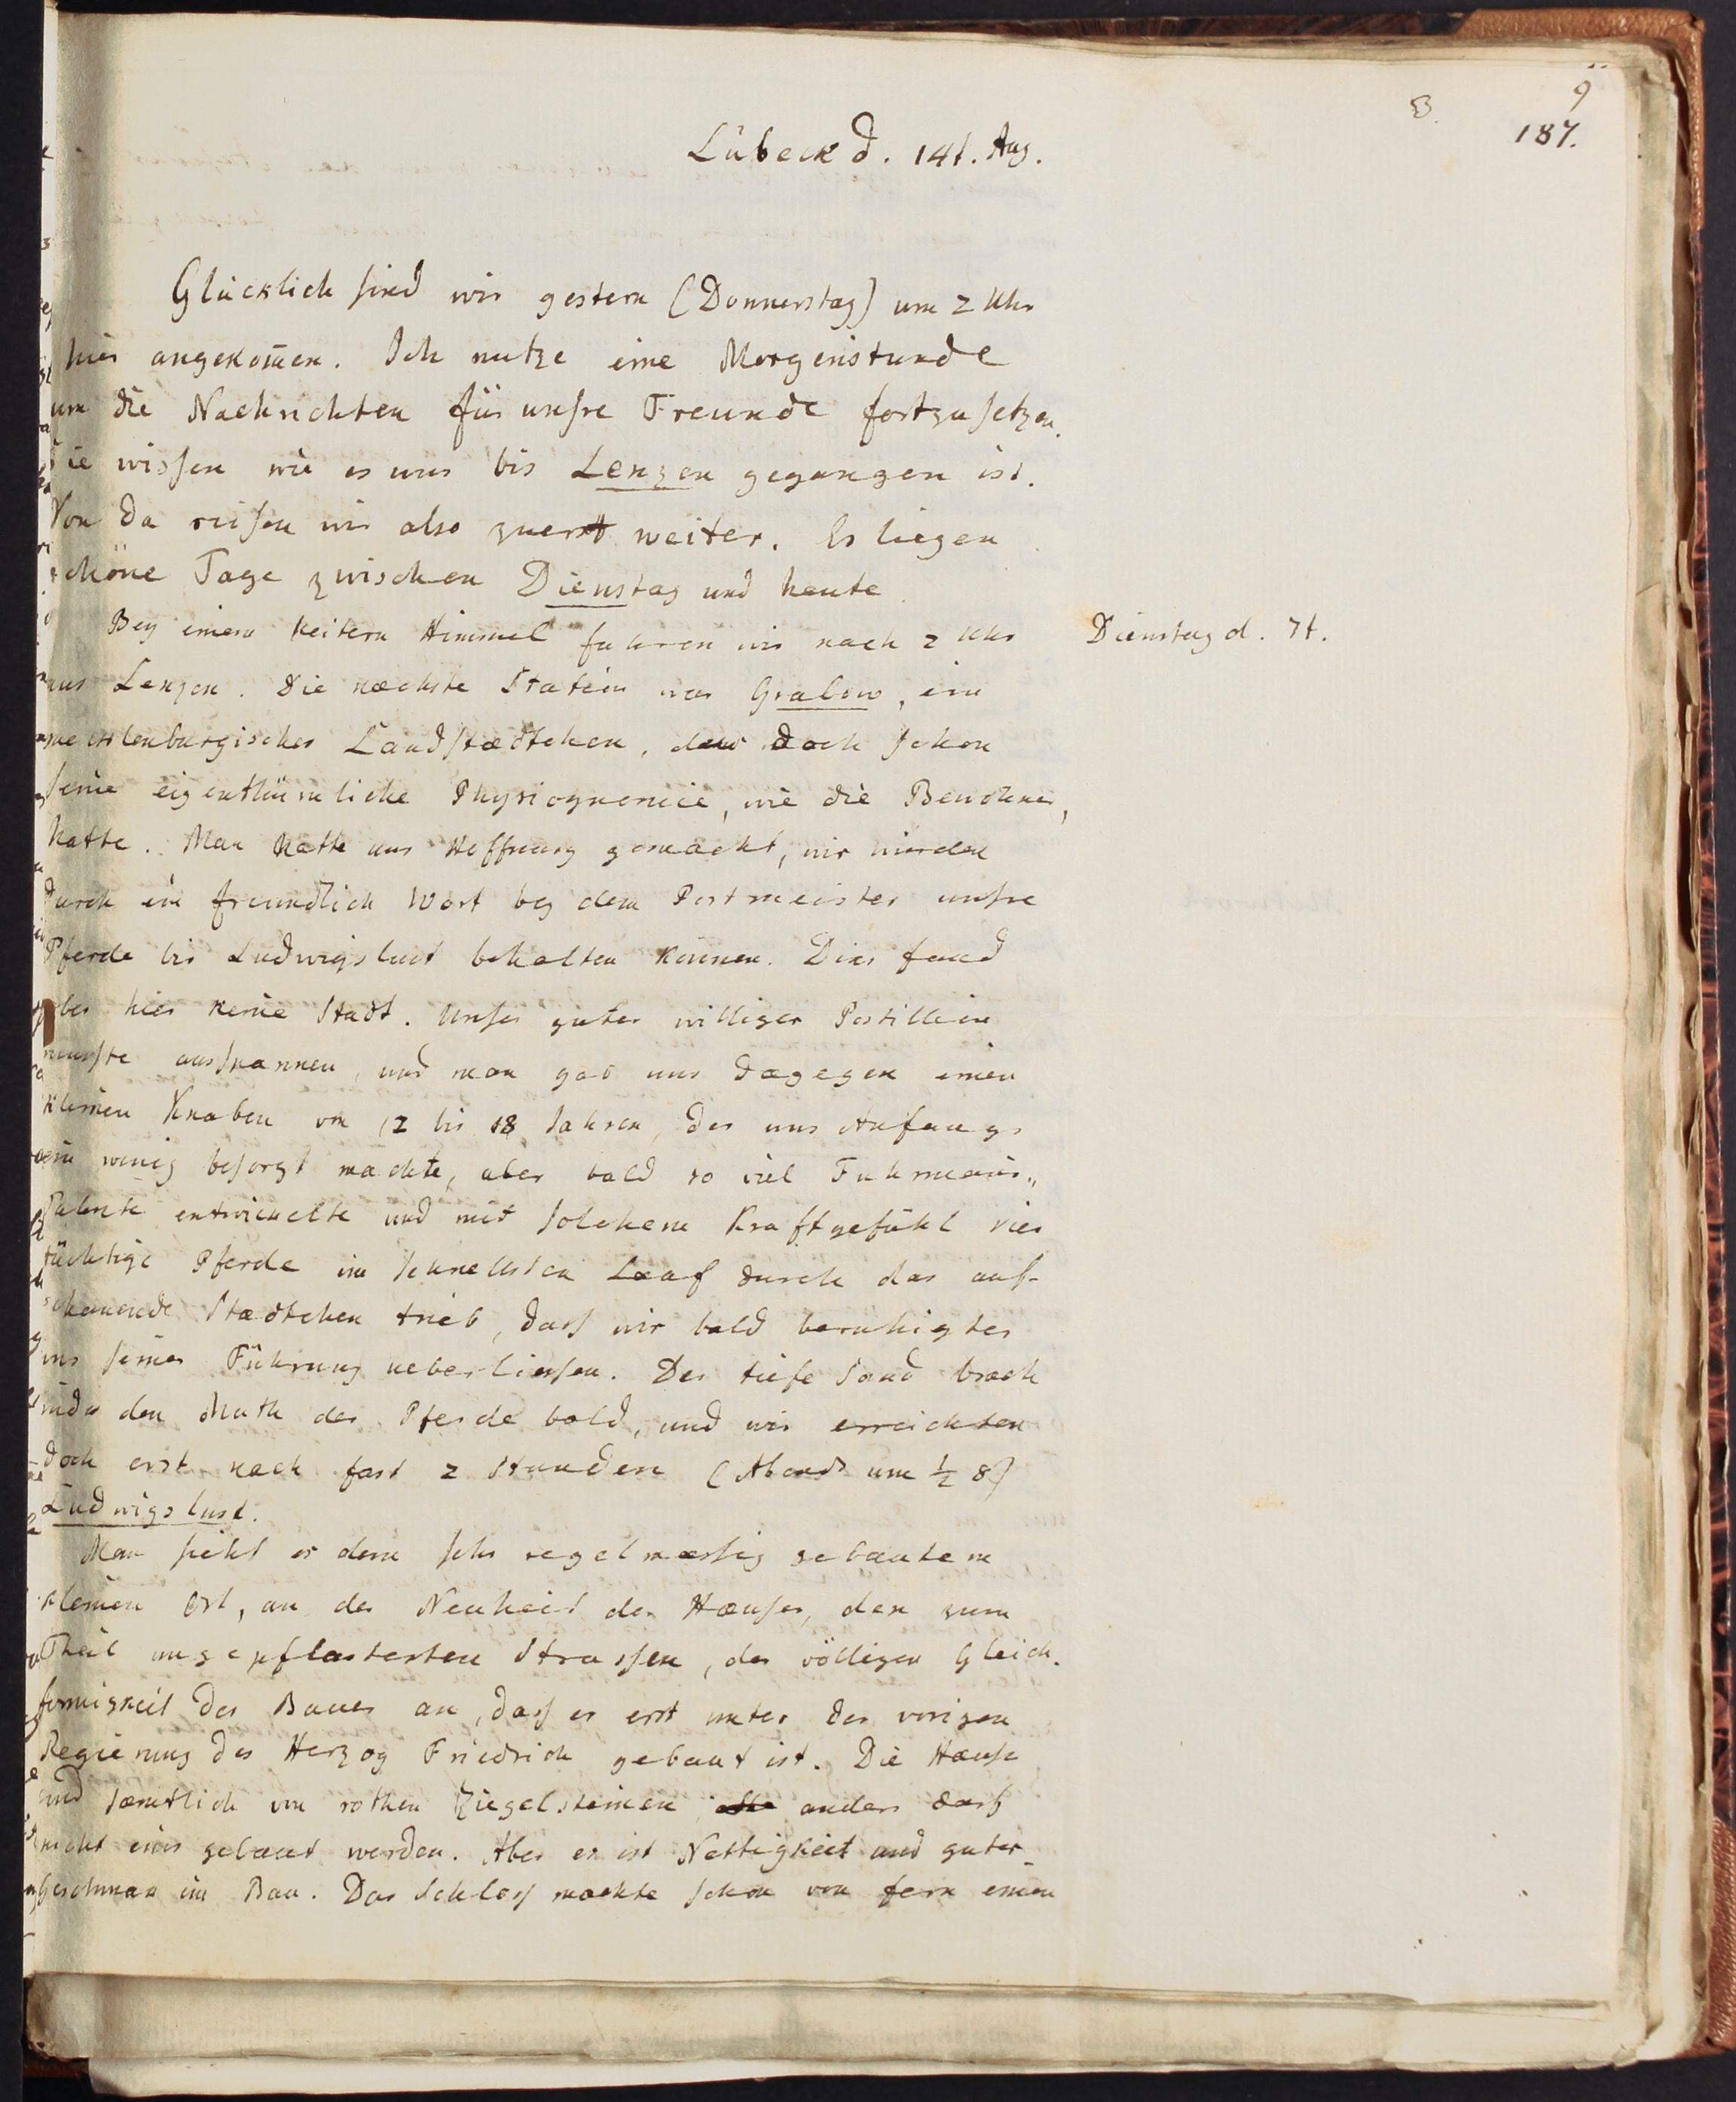 B.
9
187.
Lübeck d. 14t. Aug.
Glücklich sind wir gestern (Donnerstag) um 2 Uhr
hier angekom̄en. Ich nutze eine Morgenstunde
um die Nachrichten für unsre Freunde fortzusetzen.
Sie wissen wie es uns bis Lenzen gegangen ist.
Von da reisen wir also zuerst weiter. Es liegen
schöne Tage zwischen Dienstag und heute.
Bey einem heitern Himmel fuhren wir nach 2 Uhr
Dienstag d. 7t.
aus Lenzen. Die næchste Station war Grabow, ein
meklenburgisches Landstædtchen, das doch schon
seine eigenthümliche Physiognomie, wie die Bewohner,
hatte. Man hatte uns Hoffnung gemacht, wir würden
durch ein freundlich Wort bey dem Postmeister unsre
Pferde bis Ludwigslust behalten können. Dies fand
aber hier keine Stadt. Unser guter williger Postillion
musste ausspannen, und man gab uns dagegen einen
kleinen Knaben von 12 bis 13 Jahren, der uns Anfangs
ein wenig besorgt machte, aber bald so viel Fuhrmanns„
Talente entwickelte und mit solchem Kraftgefühl vier
tüchtige Pferde im schnellsten Lauf durch das auf-
schauende Stædtchen trieb, dass wir bald beruhigter
uns seiner Führung ueberliessen. Der tiefe Sand brach
indes den Muth der Pferde bald, und wir erreichten
doch erst nach fast 2 Stunden (Abends um ½ 8)
Ludwigslust.
Man sieht es dem sehr regelmæssig gebautem
kleinen Ort, an der Neuheit der Hæuser, den zum
Theil ungepflasterten Strassen, der völligen Gleich-
förmigkeit des Baues an, dass er erst unter der vorigen
Regierung des Herzog Friedrich gebaut ist. Die Hæuser
sind sæmtlich von rothen Ziegelsteinen anders darf
nicht eins gebaut werden. Aber es ist Nettigkeit und guter
Geschmak im Bau. Das Schloss machte schon von fern einen